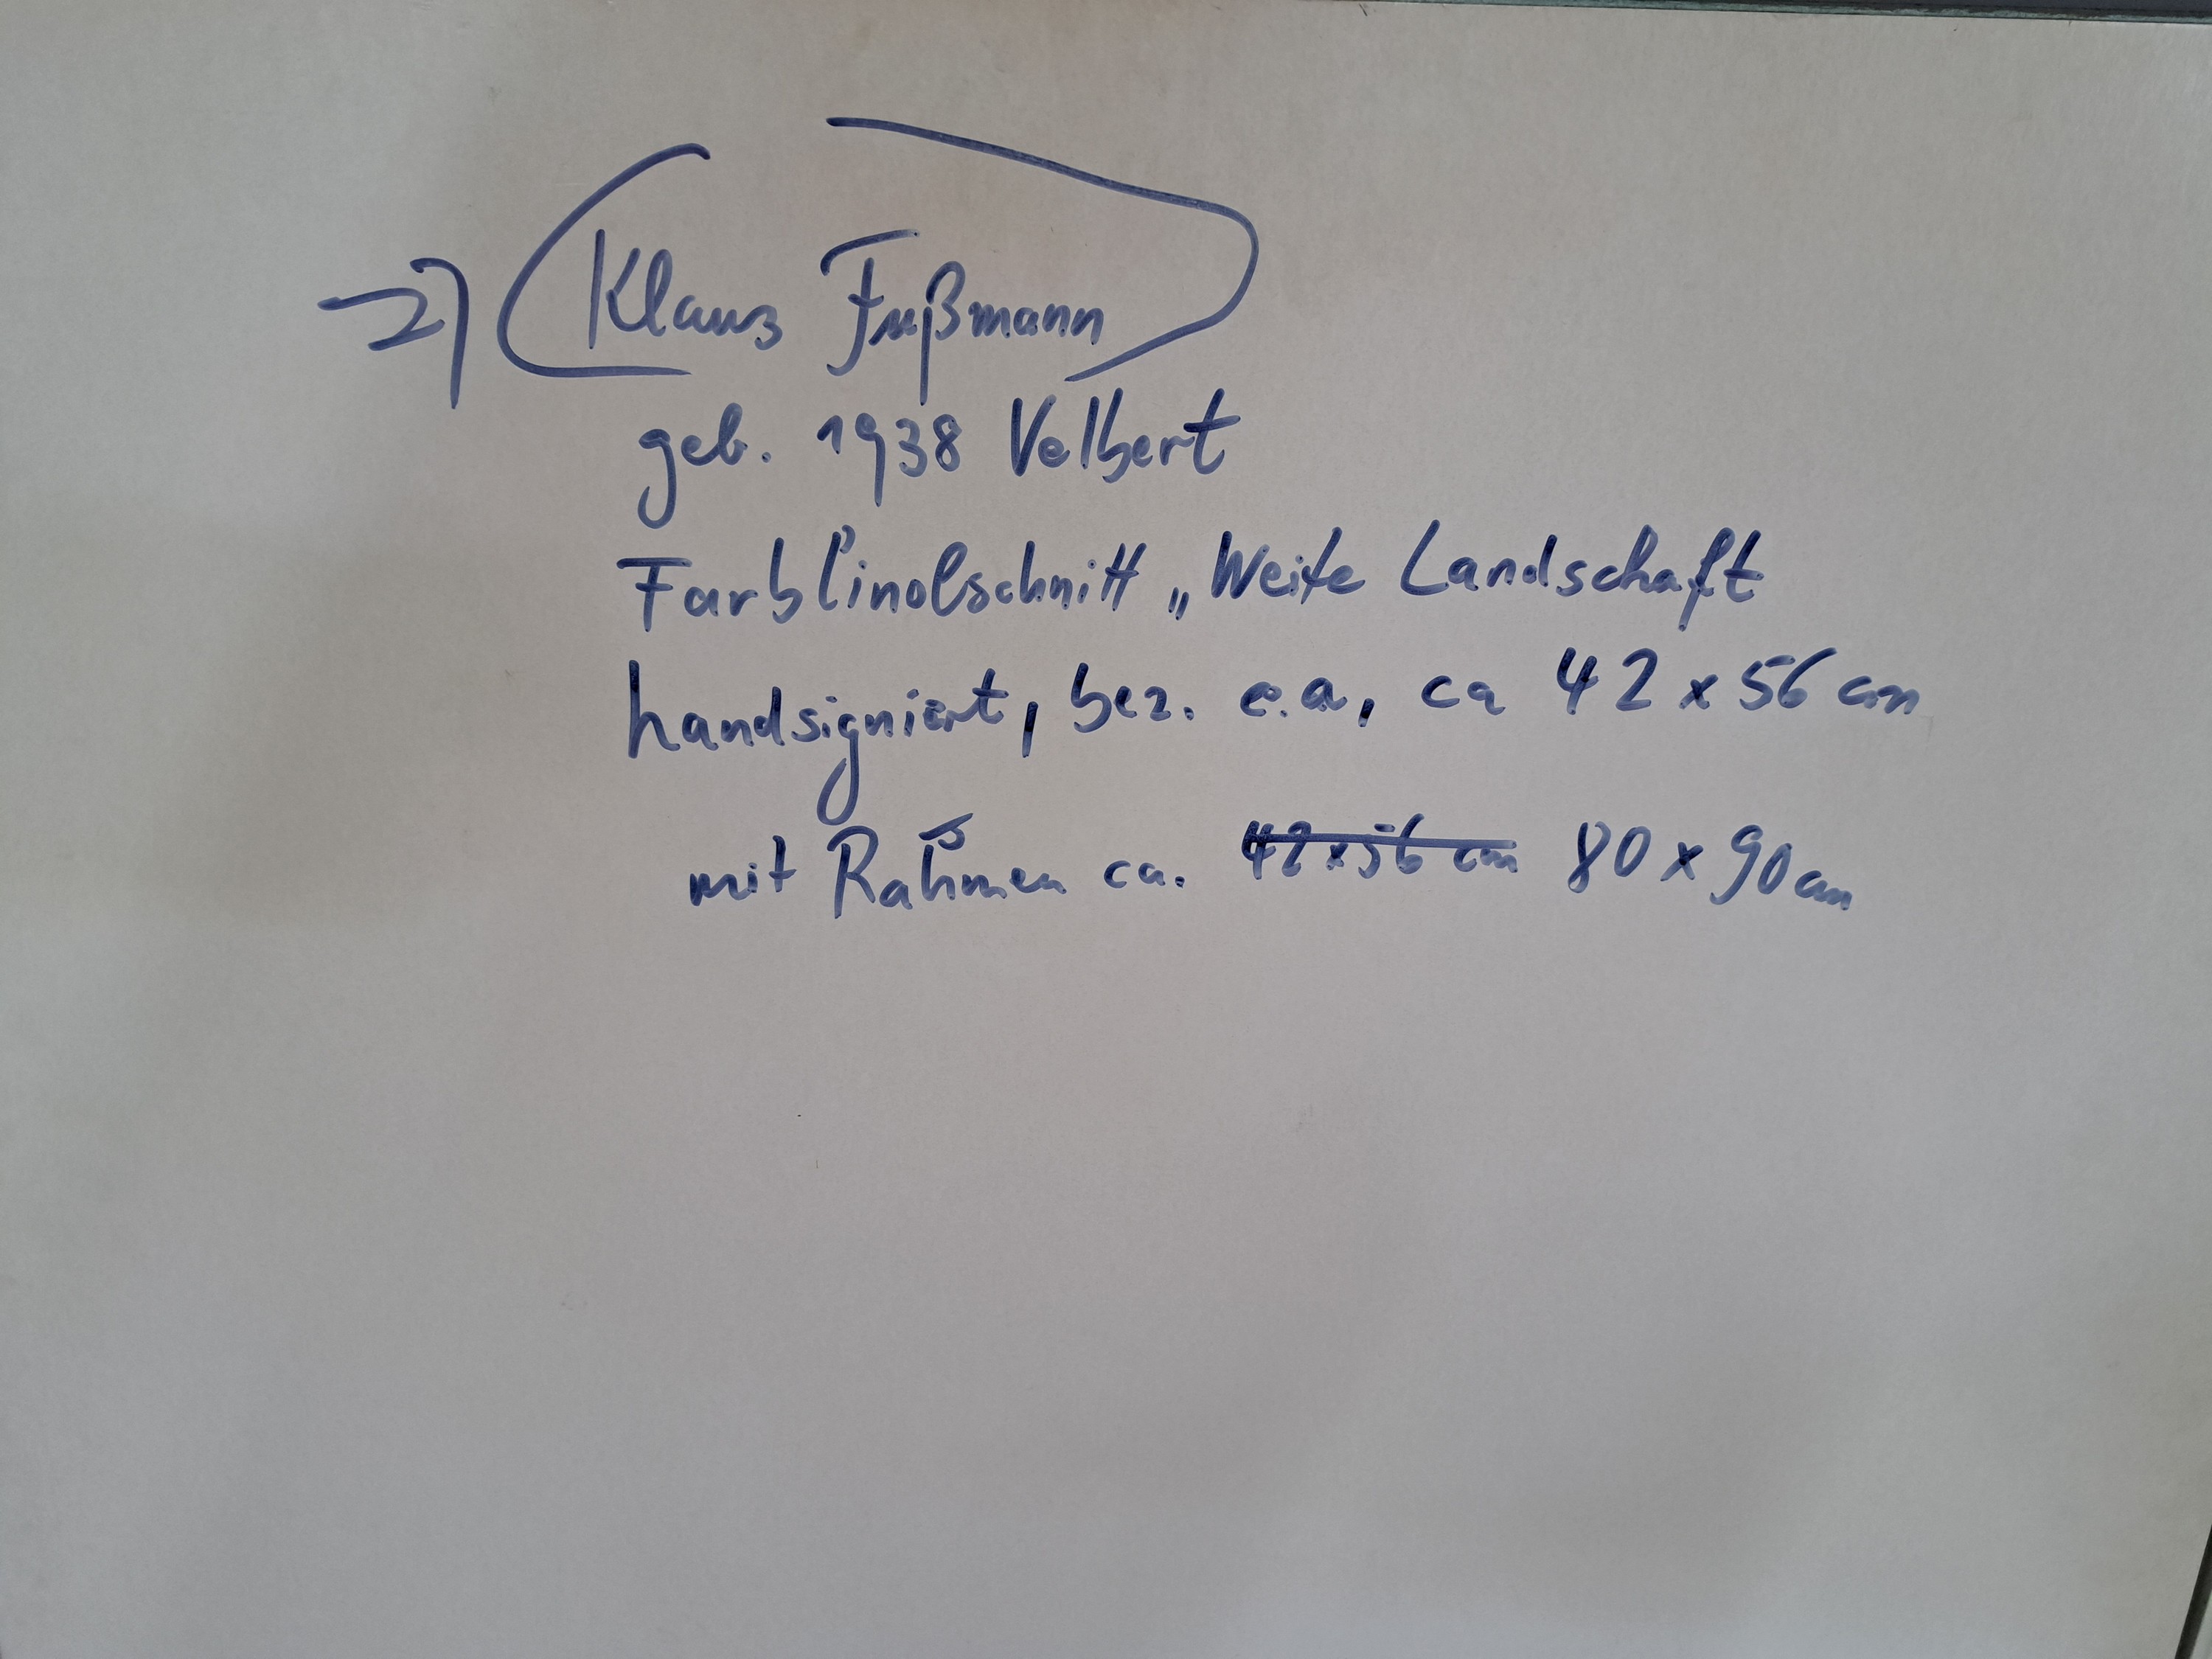 2) Klaus Fußmann
geb. 1938 Velbert
Farblinolschnitt „Weite Landschaft
handsigniert, bez. e.a, ca 42 x 56 cm
mit Rahmen ca. 42 x 56 cm 80 x 90 cm